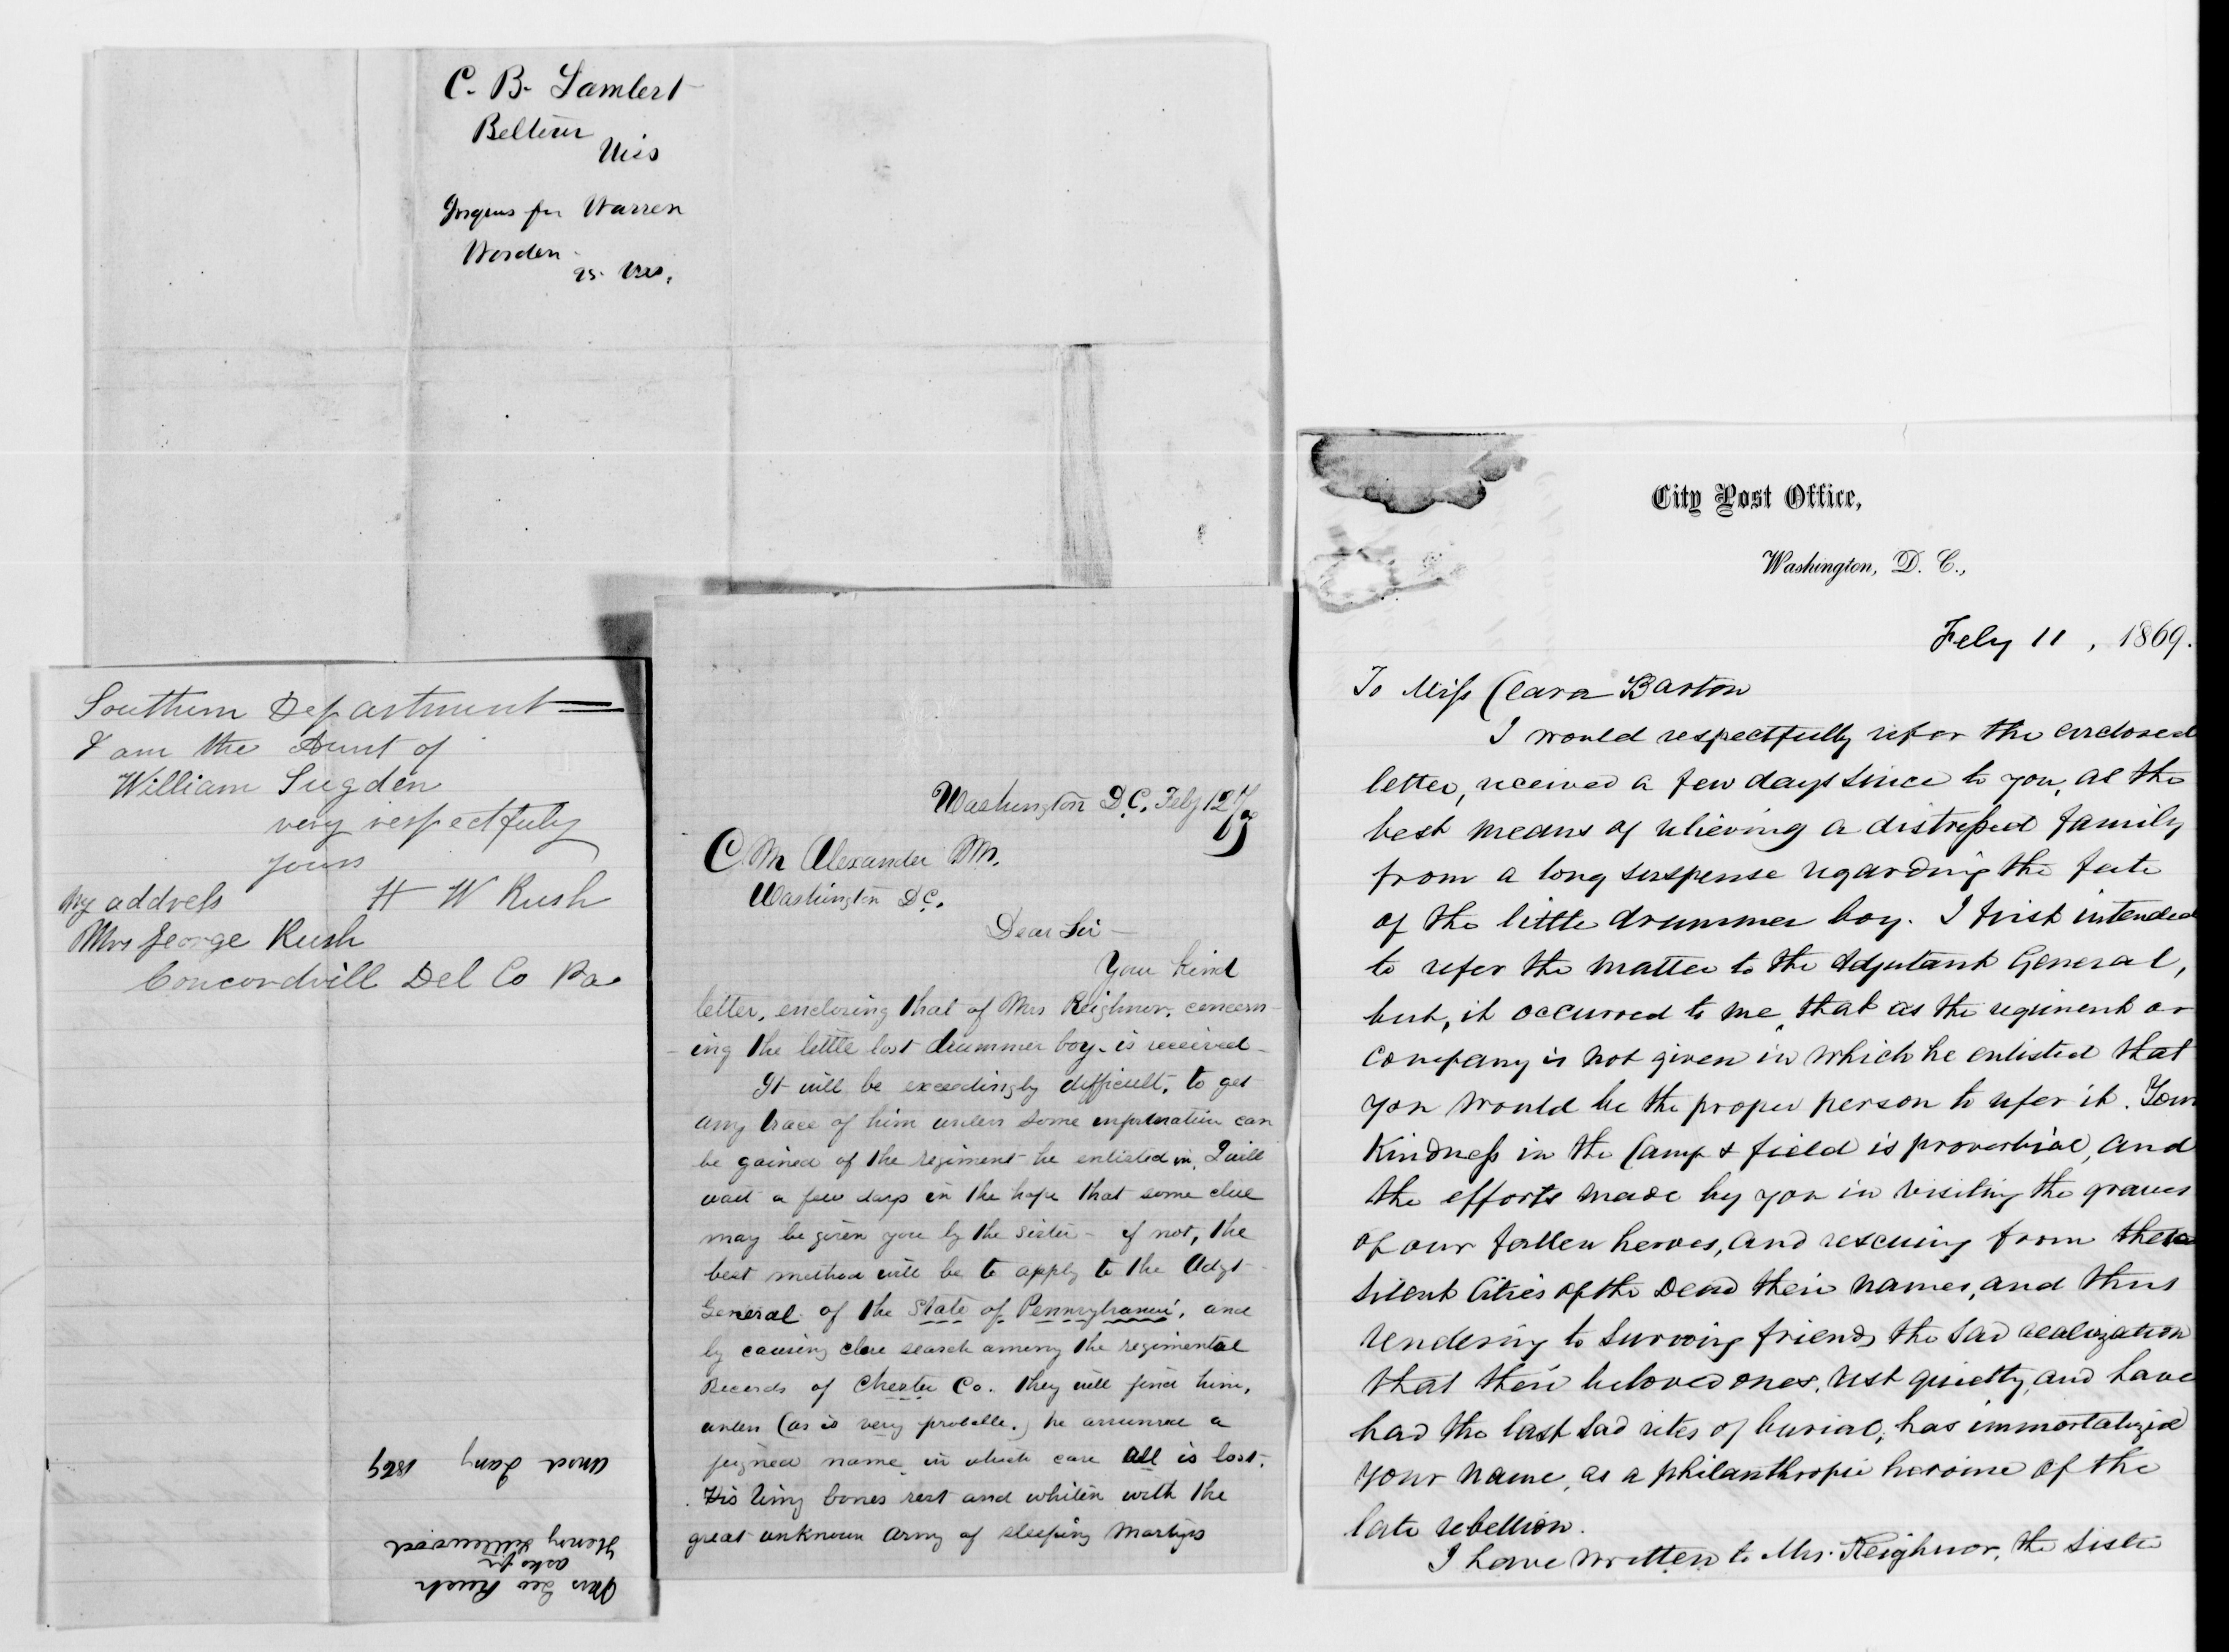 C. B. Lambert
Wis
for Warren
Worden
Southern Department
I am the Aunt of
William Sugden
very respectfuly
yours
My address H W Rush
Mrs George Rush
Concordvill Del Co Pa
Mrs Geo Rush
asks for
Henry
1869
Washington D.C. Feby 12th/69
C M Alexander P.M.
Washington D.C.
Dear Sir —
Your kind
letter, enclosing that of Mrs Reighner, concern-
-ing the little lost drummer boy - is received -
It will be exceedingly difficult, to get
any trace of him unless some information can
be gained of the regiment he enlisted in. I will
wait a few days in the hope that some clue
may be given you by the sister - if not, the
best method will be to apply to the Adgt -
General of the State of Pennsylvania, and
by causing close search among the regimental
Records of Chester Co. they will find him,
unless (as is very probable.) he assumed a
feigned name in which case all is lost.
His tiny bones rest and whiten with the
great unknown army of sleeping Martyrs
City Post Office,
Washington, D. C.,
Feby 11, 1869.
To Miss Clara Barton
I would respectfully refer the enclosed
letter, received a few days since to you, as the
best means of relieving a distressed family
from a long suspense regarding the fate
of the little drummer boy. I first intended
to refer the matter to the Adjutant General,
but, it occurred to me, that as the regiment or
company is not given in which he enlisted that
you would be the proper person to refer it. Your
Kindness in the Camp & field is proverbial, and
the efforts made by you in visiting the graves
of our fallen heroes, and rescuing from these
silent Cities of the Dead their names, and thus
rendering to surviving friends the sad realization
that their beloved ones, rest quietly, and have
had the last sad rites of burial, has immortalized
your name, as a philanthropic heroine of the
late rebellion.
I have written to Mrs. Reighner, the sister